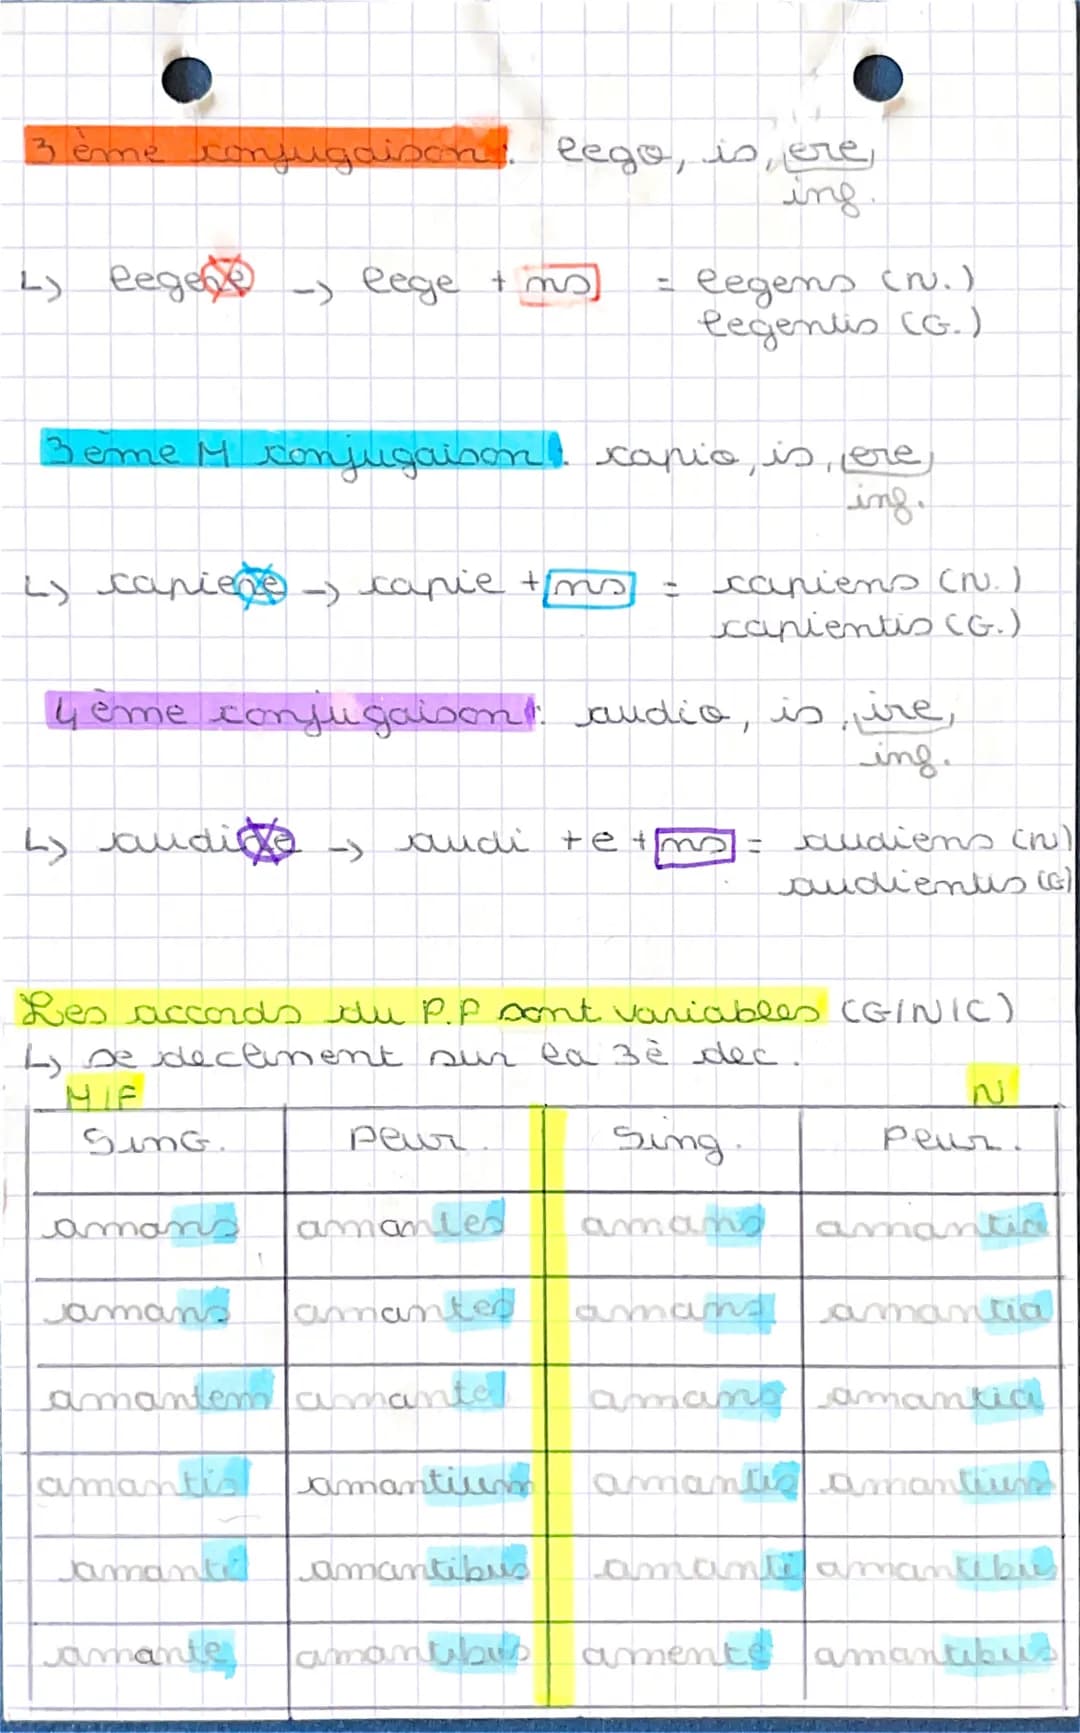 3ème conjugaison : lego, is, ere,
inf.
↳ legere → lege + ns = legens (N.)
legentis (G.)
3ème M conjugaison : capio, is, ere,
inf.
↳ capiere → capie + ns = capiens (N.)
capientis (G.)
4ème conjugaison : audio, is, ire,
inf.
↳ audire → audi + e + ns = audiens (N)
audientis (G)
Les accords du P.P sont variables (G/N/C)
↳ se declinent sur la 3è dec.
M/F N
SinG. Plur. Sing. Plur.
amans amantes amans amantia
amans amantes amans amantia
amantem amantes amans amantia
amantis amantium amantis amantium
amanti amantibus amanti amantibus
amante amantibus amente amantibus